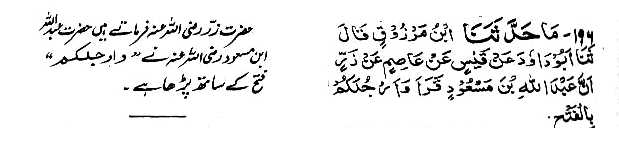 ۱۹۶- مَا حَدَّ ثَنَا ابْنُ مَرْزُوْقٍ قَالَ
ثَنَا اَبُوْدَاوٗدَ عَنْ قَيْسٍ عَنْ عَاصِمٍ عَنْ ذَرٍّ
اَنَّ عَبْدَ اللهِ بْنَ مَسْعُوْدٍ قَرَأَ وَاَرْجُلَكُمْ
بِالْفَتْحِ.
حضرت زر رضی اللہ عنہ فرماتے ہیں حضرت عبداللہ
ابن مسعود رضی اللہ عنہ نے "وارجلکم"
فتح کے ساتھ پڑھا ہے۔